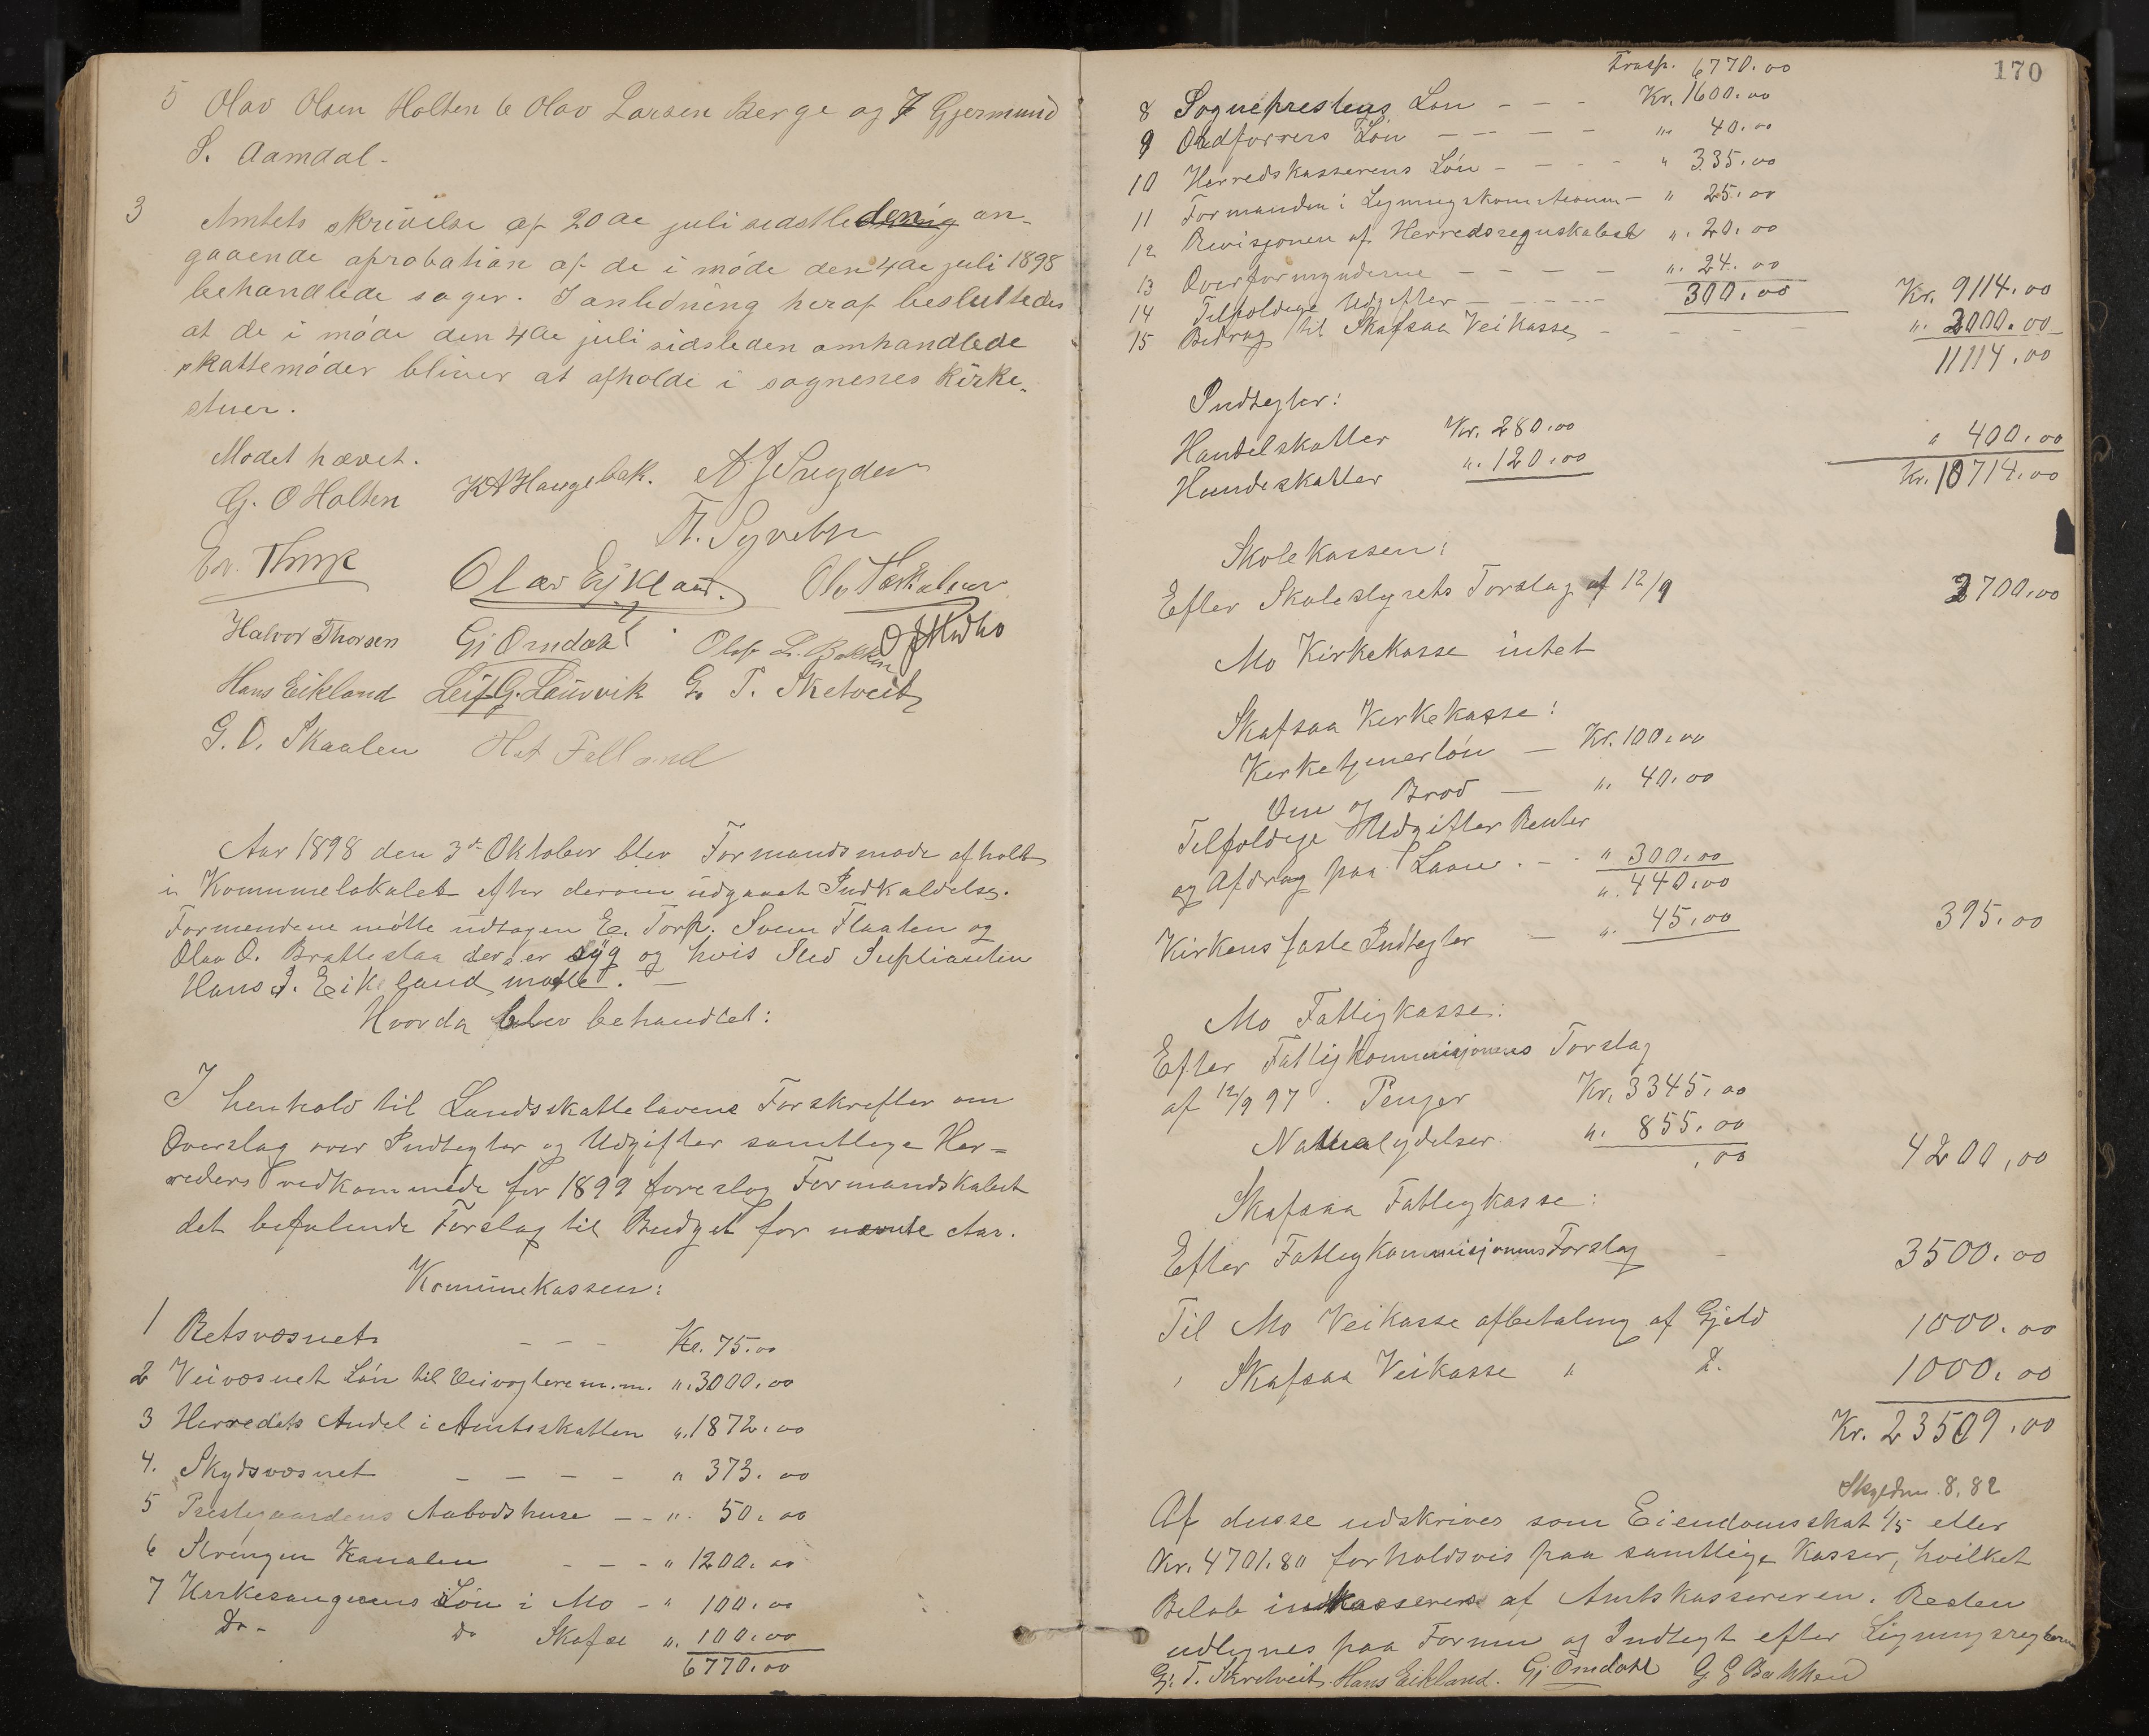 5 Olav Olsen Holten 6 Olav Larsen Berge og 7 Gjermund
S. Aamdal -
3 Amtets skrivelse af 20de juli sidstleden an-
gaaende aprobation af de i møde den 4de juli 1898
behandlede sager. I anledning heraf besluttedes
at de i møde den 4de juli sidsleden omhandlede
skattemøder bliver at afholde i sognenes kirke-
stuer.
Mødet hævet.
G. O Holten K A Haugebak.
Olav Eikland.
Halvor Thorsen Gj Omdahl Olaf L. Bakken
Hans Eikland Leif G. Lauvvik G. T. Sketveit
G. O. Skaalen Felland
Aar 1898 den 3de Oktober blev Formandsmøde afholdt
i Kommunelokalet efter derom udgaaet Indkaldelse.
Formendene møtte udtagen E. Torp. Svein Flaaten og
Olav O. Bratteslaa der er syg og hvis Sted Suplianten
Hans J. Eikeland møtte. —
Hvorda blev behandlet:
I henhold til Landsskattelovens Forskrifter om
Overslag over Indtegter og Udgifter samtlege Her=
reders vedkommede for 1899 foreslog Formandskabet
det befølende Forslag til Budget for nævnte Aar.
Kommunekassen:
1 Retsvæsnet - - - Kr. 75.00
2 Veivæsnet Løn til Veivogtere m.m. " 3000.00
3 Herredets Andel i Amtsskatten " 1872.00
4. Skydsvæsnet - - - - " 373.00
5 Prestegaardens Aabodshuse - - " 50.00
6 Strengen Kanalen - - - " 1200.00
7 Kirkesangerens Løn i Mo - " 100.00
Do - do Skafse " 100.00
6770.00
170
Transp. 6770.00
8 Sogneprestens Løn - - - Kr. 1600.00
9 Ordførers Løn - - - - " 40.00
10 Herredskasserens Løn - - - - " 335.00
11 Formanden i Ligningskomitionen - " 25.00
12 Revisjonen af Herredsregnskabet " 20.00
13 Overformynderne - - - - " 24.00
14 Tilfoldige Udgifter - - - - 300.00 Kr. 9114.00
15 Bidrag til Skafsaa Veikasse - - - - " 2000.00
11114.00
Indtegter:
Handelskatter Kr. 280.00
Hundeskatter " 120.00 " 400.00
Kr. 10714.00
Skolekassen:
Efter Skolestyrets Forslag af 12/9 2700.00
Mo Kirkekasse intet
Skafsaa Kirkekasse:
Kirketjenerløn — Kr. 100.00
Vin og Brød — " 40.00
Tilfoldige Udgifter Renter
og Afdrag paa Laan . - - " 300.00
" 440.00
Kirkens faste Indtegter — " 45.00 395.00
Mo Fattigkasse:
Efter Fattigkommisjonens Forslag
af 12/9 97 . Penger Kr. 3345.00
Naturalydelser " 855.00
,00 4200,00
Skafsaa Fattigkasse:
Efter Fattigkommisjonens Forslag - 3500.00
Til Mo Veikasse afbetaling af Gjeld 1000.00
" Skafsaa Veikasse " D. 1000.00
Kr. 23509.00
Skyldm. 8.82
Af disse udskrives som Eiendomsskat 1/5 eller
Kr. 4701.80 forholdsvis paa samtlige Kasser, hvilket
Beløb indkasseres af Amtskassereren. Resten
udlegnes paa Formue og Indtegt efter Ligningsreglerne
G. T. Skretveit. Hans Eikland. Gj Omdahl G G Bakken